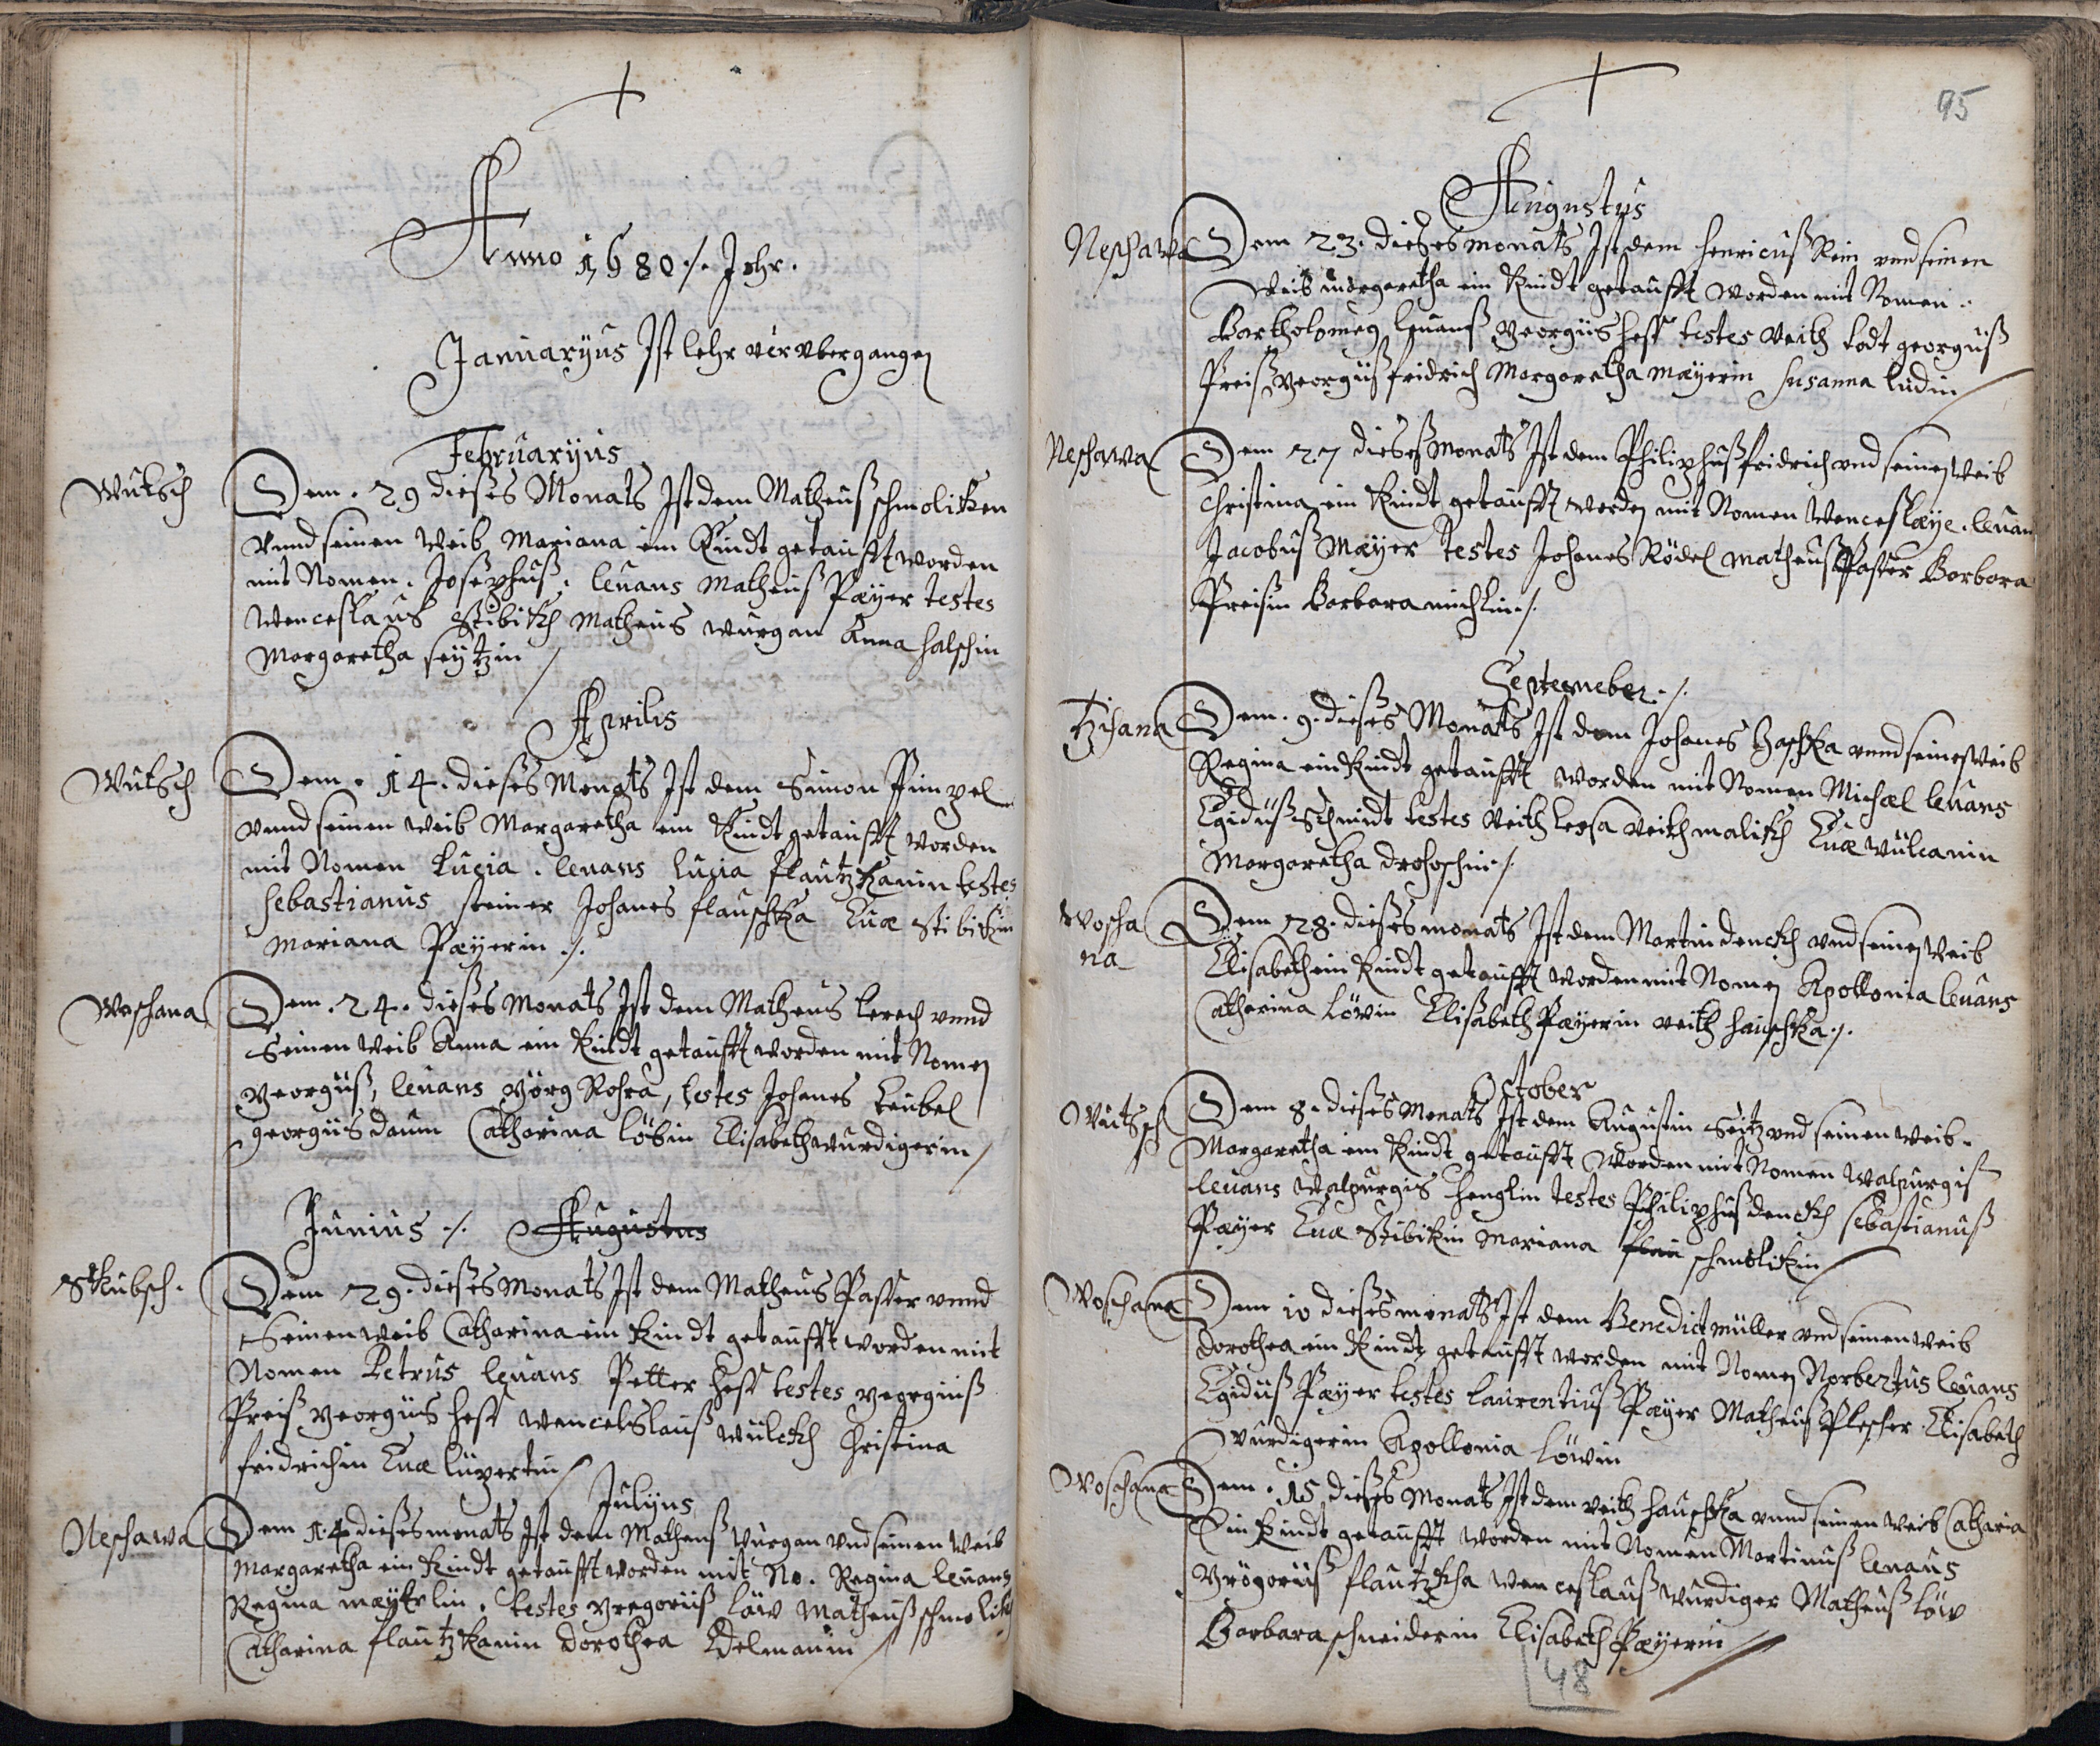 Anno 1680 ./. Jahr.
Januaryus Ist lehr vervbergangen
Februaryus
Wutsch
Dem . 29 dieses Monats Ist dem Matheus schmolicken
vnnd seinen Weib Mariana ein Kindt getaufft worden
mit Nomen . Josephuß . levans Matheus Payer testes
Wenceslaus Stibickh Matheus Wurgan Anna Halschin
Margaretha seytzin /
Aprilis
Wutsch
Dem . 14 . dieses Monats Ist dem Simon Pimpel
vnnd seinen Weib Margaretha ein Kindt getaufft worden
mit Nomen Lucia . levans Lucia flautzkanin testes
sebastianus steiner Johanes flauschka Euæ Stibickin
Mariana Payerin ./.
Woschana
Dem . 24 . dieses Monats Ist dem Matheus Lerch vnnd
Seinen Weib Anna ein Kindt getaufft worden mit Nomen
Georguß, levans Görg Rohra, testes Johanes Teubel
georgus daum Catharina Löbin Elisabeth wurdigerin /
Junius ./. Augustus
Stkubsch .
Dem 29 . dieses Monats Ist dem Matheus Passer vnnd
Seinen Weib Catharina ein Kindt getaufft worden mit
Nomen Petrus levans Petter Hess testes georguß
Preiß Georgus Hess Wencelslauß Wülckh Christina
fridrichin Euæ Lupertin /
Julyus
Neschawa
Dem 14 dieses monats Ist dem Matheuß Wurgan vnd seinen Weib
Margaretha ein Kindt getaufft worden mit No. Regina levans
Regina mayerlin . testes Gregoriuß Löw Matheuß schmolick
Catharina flautzkanin Dorothea Edelmanin /
95
Augustus
Neschawa
Dem 23 . dieses monats Ist dem Henricuß Rein vnd seinen
Weib Margaretha ein Kindt getaufft worden mit Nomen .
Bartholomey levanß Georgus Hess testes Veith todt georguß
Preiß Georguß fridrich Margaretha Mayerin Susanna Ludin /
Neschawa
Dem 27 dieses Monats Ist dem Philiphuß fridrich vnd seinen Weib
Christina ein Kindt getaufft worden mit Nomen Wenceslaye . levan
Jacobuß Mayer testes Johanes Rödel Matheuß Passer Barbara
Preisin Barbara michlin ./.
Septemeber ./.
Tzihana
Dem . 9 . dieses Monats Ist dem Johanes Haschka vnnd seines Weib
Regina ein Kindt getaufft worden mit Nomen Michæl levans
Egiduß Schmidt testes Veith Lessa Veith malickh Euæ Wulcanin
Margaretha Drohoschin ./.
Woscha
na
Dem 28 . dieses monats Ist dem Martin denckh vnd seinen Weib
Elisabeth ein Kindt getaufft worden mit Nomen Apollonia levans
Catharina Löwin Elisabeth Payerin Veith Hauschka ./.
October
Wutsch
Dem 8 . dieses Monats Ist dem Augustin Seitz vnd seinen Weib .
Margaretha ein Kindt getaufft worden mit Nomen Walpurgis
levans Walpurgis Henglin testes Philiphuß denckh sebastianuß
Payer Euæ Stibickin Mariana flau schmolickin /
Woschana
Dem 10 dieses monats Ist dem Benedict müller vnd seinen Weib
Dorothea ein Kindt getaufft worden mit Nomen Norbertus levans
Egiduß Payer testes Laurentiuß Payer Matheuß Plescher Elisabeth
Wurdigerin Apollonia Löwin
Woschana
Dem . 15 dieses Monats Ist dem Veith Hauschka vnnd seinen Weib Catharia
Ein Kindt getaufft worden mit Nomen Martinuß levans
Grögoriuß flautzkha Wenceslauß Wurdiger Matheuß Löw
Barbara schneiderin Elisabeth Payerin /
48